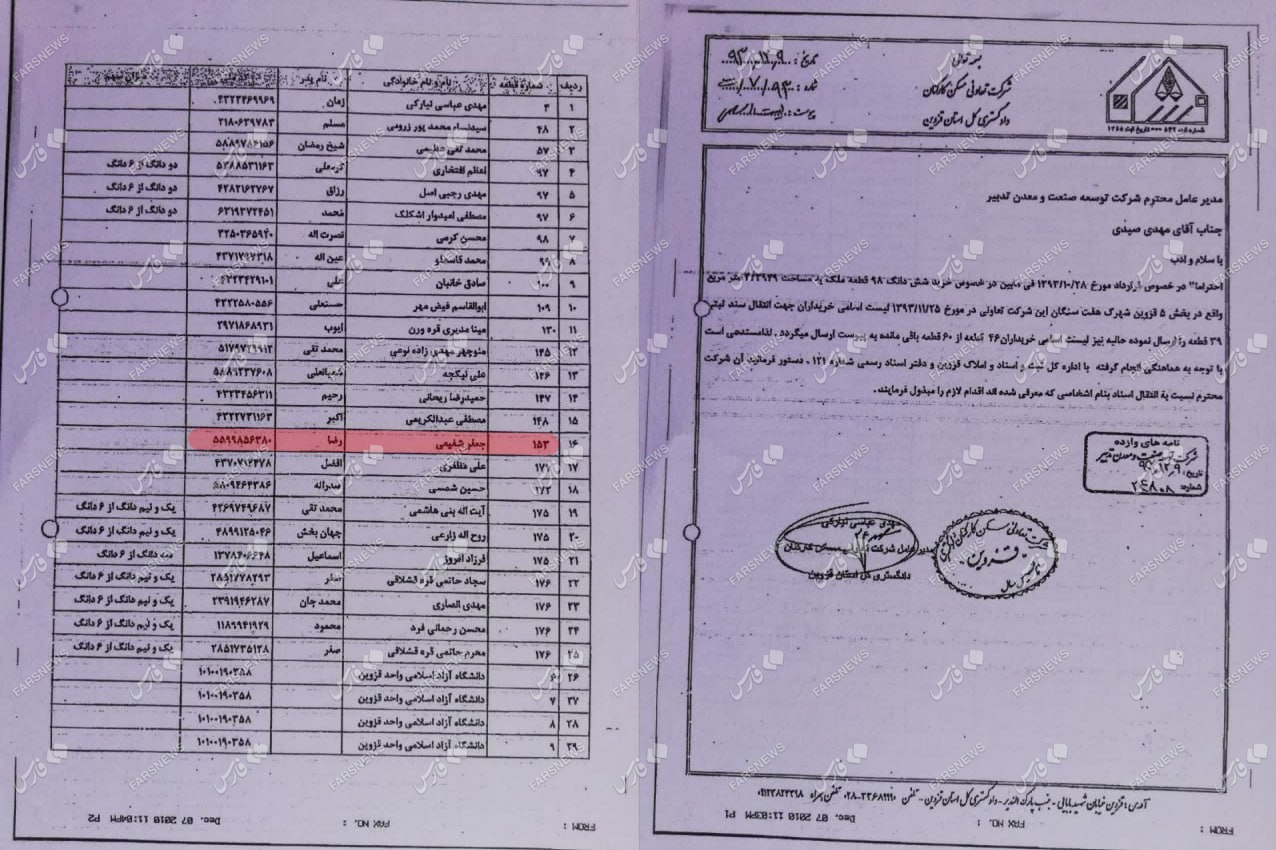 بسمه تعالی
شرکت تعاونی مسکن کارکنان
دادگستری کل استان قزوین
تاریخ:
شماره:
پیوست:
مدیر عامل محترم شرکت توسعه صنعت و معدن تدبیر
جناب آقای مهدی صیدی
با سلام و ادب
احتراما" در خصوص قرارداد مورخ ۱۳۹۳/۱۰/۲۸ فی مابین در خصوص خرید شش دانگ ۹۸ قطعه ملک به مساحت متر مربع
واقع در بخش ۵ قزوین شهرک هفت سنگان این شرکت تعاونی در مورخ ۱۳۹۳/۱۱/۲۵ لیست اسامی خریداران جهت انتقال سند
۳۹ قطعه را ارسال نموده حالیه نیز لیست اسامی خریداران ۴۶ قطعه از ۶۰ قطعه باقی مانده به پیوست ارسال میگردد . لذا مستدعی است
با توجه به هماهنگی انجام گرفته با اداره کل ثبت و اسناد و املاک قزوین و دفتر اسناد رسمی شماره ۱۲۱ ، دستور فرمائید آن شرکت
محترم نسبت به انتقال اسناد بنام اشخاصی که معرفی شده اند اقدام لازم را مبذول فرمایند.
نامه های وارده
شرکت توسعه صنعت و معدن تدبیر
تاریخ:
شماره:
مهدی عباسی نیارکی
مدیر عامل شرکت تعاونی مسکن کارکنان
دادگستری کل استان قزوین
قزوین
آدرس: قزوین خیابان شهید بابائی - جنب پارک الغدیر - دادگستری کل استان قزوین - تلفن تلفن همراه
FROM : FAX NO. : Dec. 07 2010 11:03PM P1
ردیف شماره قطعه نام و نام خانوادگی نام پدر
۱ ۳ مهدی عباسی نیارکی زمان ۴۳۲۲۴۶۹۹۶۹
۲ ۴۸ محمد پور زرومی مسلم ۲۱۸۰۶۳۹۷۸۳
۳ ۵۷ محمد تقی شیخ رمضان
۴ ۹۷ اعظم افتخاری کرمعلی ۵۳۸۸۵۳۱۱۶۳ دو دانگ از ۶ دانگ
۵ ۹۷ مهدی رجبی اصل رزاق ۴۲۸۲۱۶۲۷۶۷ دو دانگ از ۶ دانگ
۶ ۹۷ مصطفی امیدوار اشکلک محمد ۶۳۱۹۳۷۲۴۵۱ دو دانگ از ۶ دانگ
۷ ۹۸ محسن کرمی نصرت اله ۳۲۵۰۳۶۵۹۴۰
۸ ۹۹ محمد عین اله
۹ ۱۰۰ صادق خانبان علی ۴۳۲۳۴۲۹۱۰۱
۱۰ ۱۰۹ ابوالقاسم فیض مهر حسنعلی ۴۳۲۲۵۸۰۵۵۶
۱۱ ۱۳۰ مینا مدیری قره ورن ایوب ۲۹۷۱۸۶۸۹۳۱
۱۲ ۱۴۵ منوچهر مهدی زاده نوعی محمد تقی
۱۳ ۱۴۶ علی نیکچه شعبانعلی ۵۸۸۹۲۳۷۶۰۸
۱۴ ۱۴۷ حمیدرضا ریحانی رحیم ۴۳۲۳۴۵۶۳۱۱
۱۵ ۱۴۸ مصطفی عبدالکریمی اکبر ۴۳۲۲۷۳۱۱۶۳
۱۶ ۱۵۳ جعفر شفیعی رضا ۵۵۹۹۸۵۶۳۸۰
۱۷ ۱۷۱ علی مظفری افضل
۱۸ ۱۷۲ حسین شمسی صدراله
۱۹ ۱۷۵ آیت اله بنی هاشمی محمد تقی ۴۳۶۹۷۴۹۶۸۷ یک و نیم دانگ از ۶ دانگ
۲۰ ۱۷۵ روح اله زارعی جهان بخش ۴۸۹۹۱۲۵۰۴۶ یک و نیم دانگ از ۶ دانگ
۲۱ ۱۷۵ فرزاد افروز اسماعیل سه دانگ از ۶ دانگ
۲۲ ۱۷۶ سجاد حاتمی قره قشلاقی صفر ۲۸۵۱۷۷۸۲۹۳ یک و نیم دانگ از ۶ دانگ
۲۳ ۱۷۶ مهدی انصاری محمد جان ۲۳۹۱۹۴۶۲۸۷ یک و نیم دانگ از ۶ دانگ
۲۴ ۱۷۶ محسن رحمانی فرد محمود ۱۱۸۹۹۴۱۹۲۹ یک و نیم دانگ از ۶ دانگ
۲۵ ۱۷۶ محرم حاتمی قره قشلاقی صفر ۲۸۵۱۷۳۵۱۲۸ یک و نیم دانگ از ۶ دانگ
۲۶ ۶ دانشگاه آزاد اسلامی واحد قزوین ۱۰۱۰۰۱۹۰۳۵۸
۲۷ ۷ دانشگاه آزاد اسلامی واحد قزوین ۱۰۱۰۰۱۹۰۳۵۸
۲۸ ۸ دانشگاه آزاد اسلامی واحد قزوین ۱۰۱۰۰۱۹۰۳۵۸
۲۹ ۹ دانشگاه آزاد اسلامی واحد قزوین ۱۰۱۰۰۱۹۰۳۵۸
FROM : FAX NO. : Dec. 07 2010 11:04PM P2
فارس
FARSNEWS